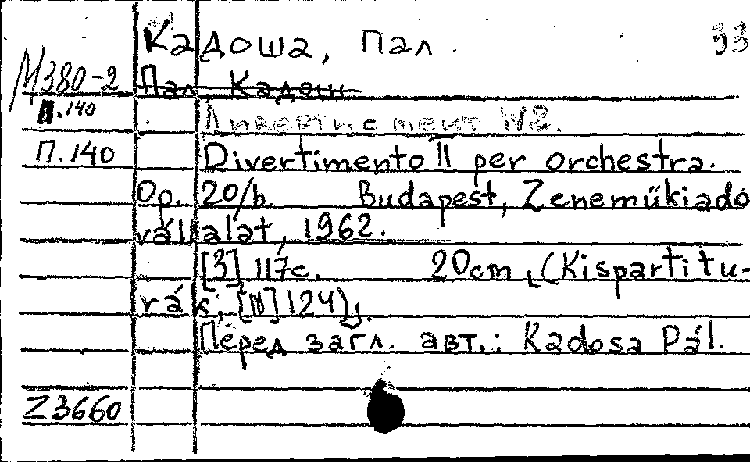 Кадоша, Пал. 33
М380-2 Пал Кадош
П.140
Дивертисмент №2.
П.140 Divertimento II per orchestra.
Op. 20/b. Budapest, Zeneműkiadó
vállalat, 1962.
[3] 117с. 20cm. (Kispartitu-
rák, [N] 124).
Перед загл. авт.: Kadosa Pál.
Z3660